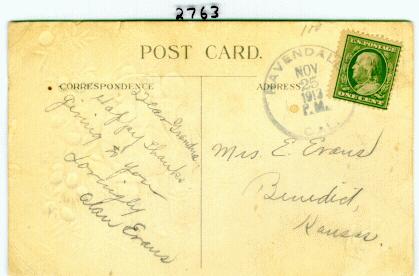 2763
110
POST CARD.
CORRESPONDENCE
ADDRESS
Dear Grandma
Happy Thanks
giving to you
Lovingly
Alan Evans
RAVENDALE
NOV
25
P.M.
CAL.
U.S. POSTAGE
ONE CENT
Mrs. E. Evans
Benedict,
Kansas.